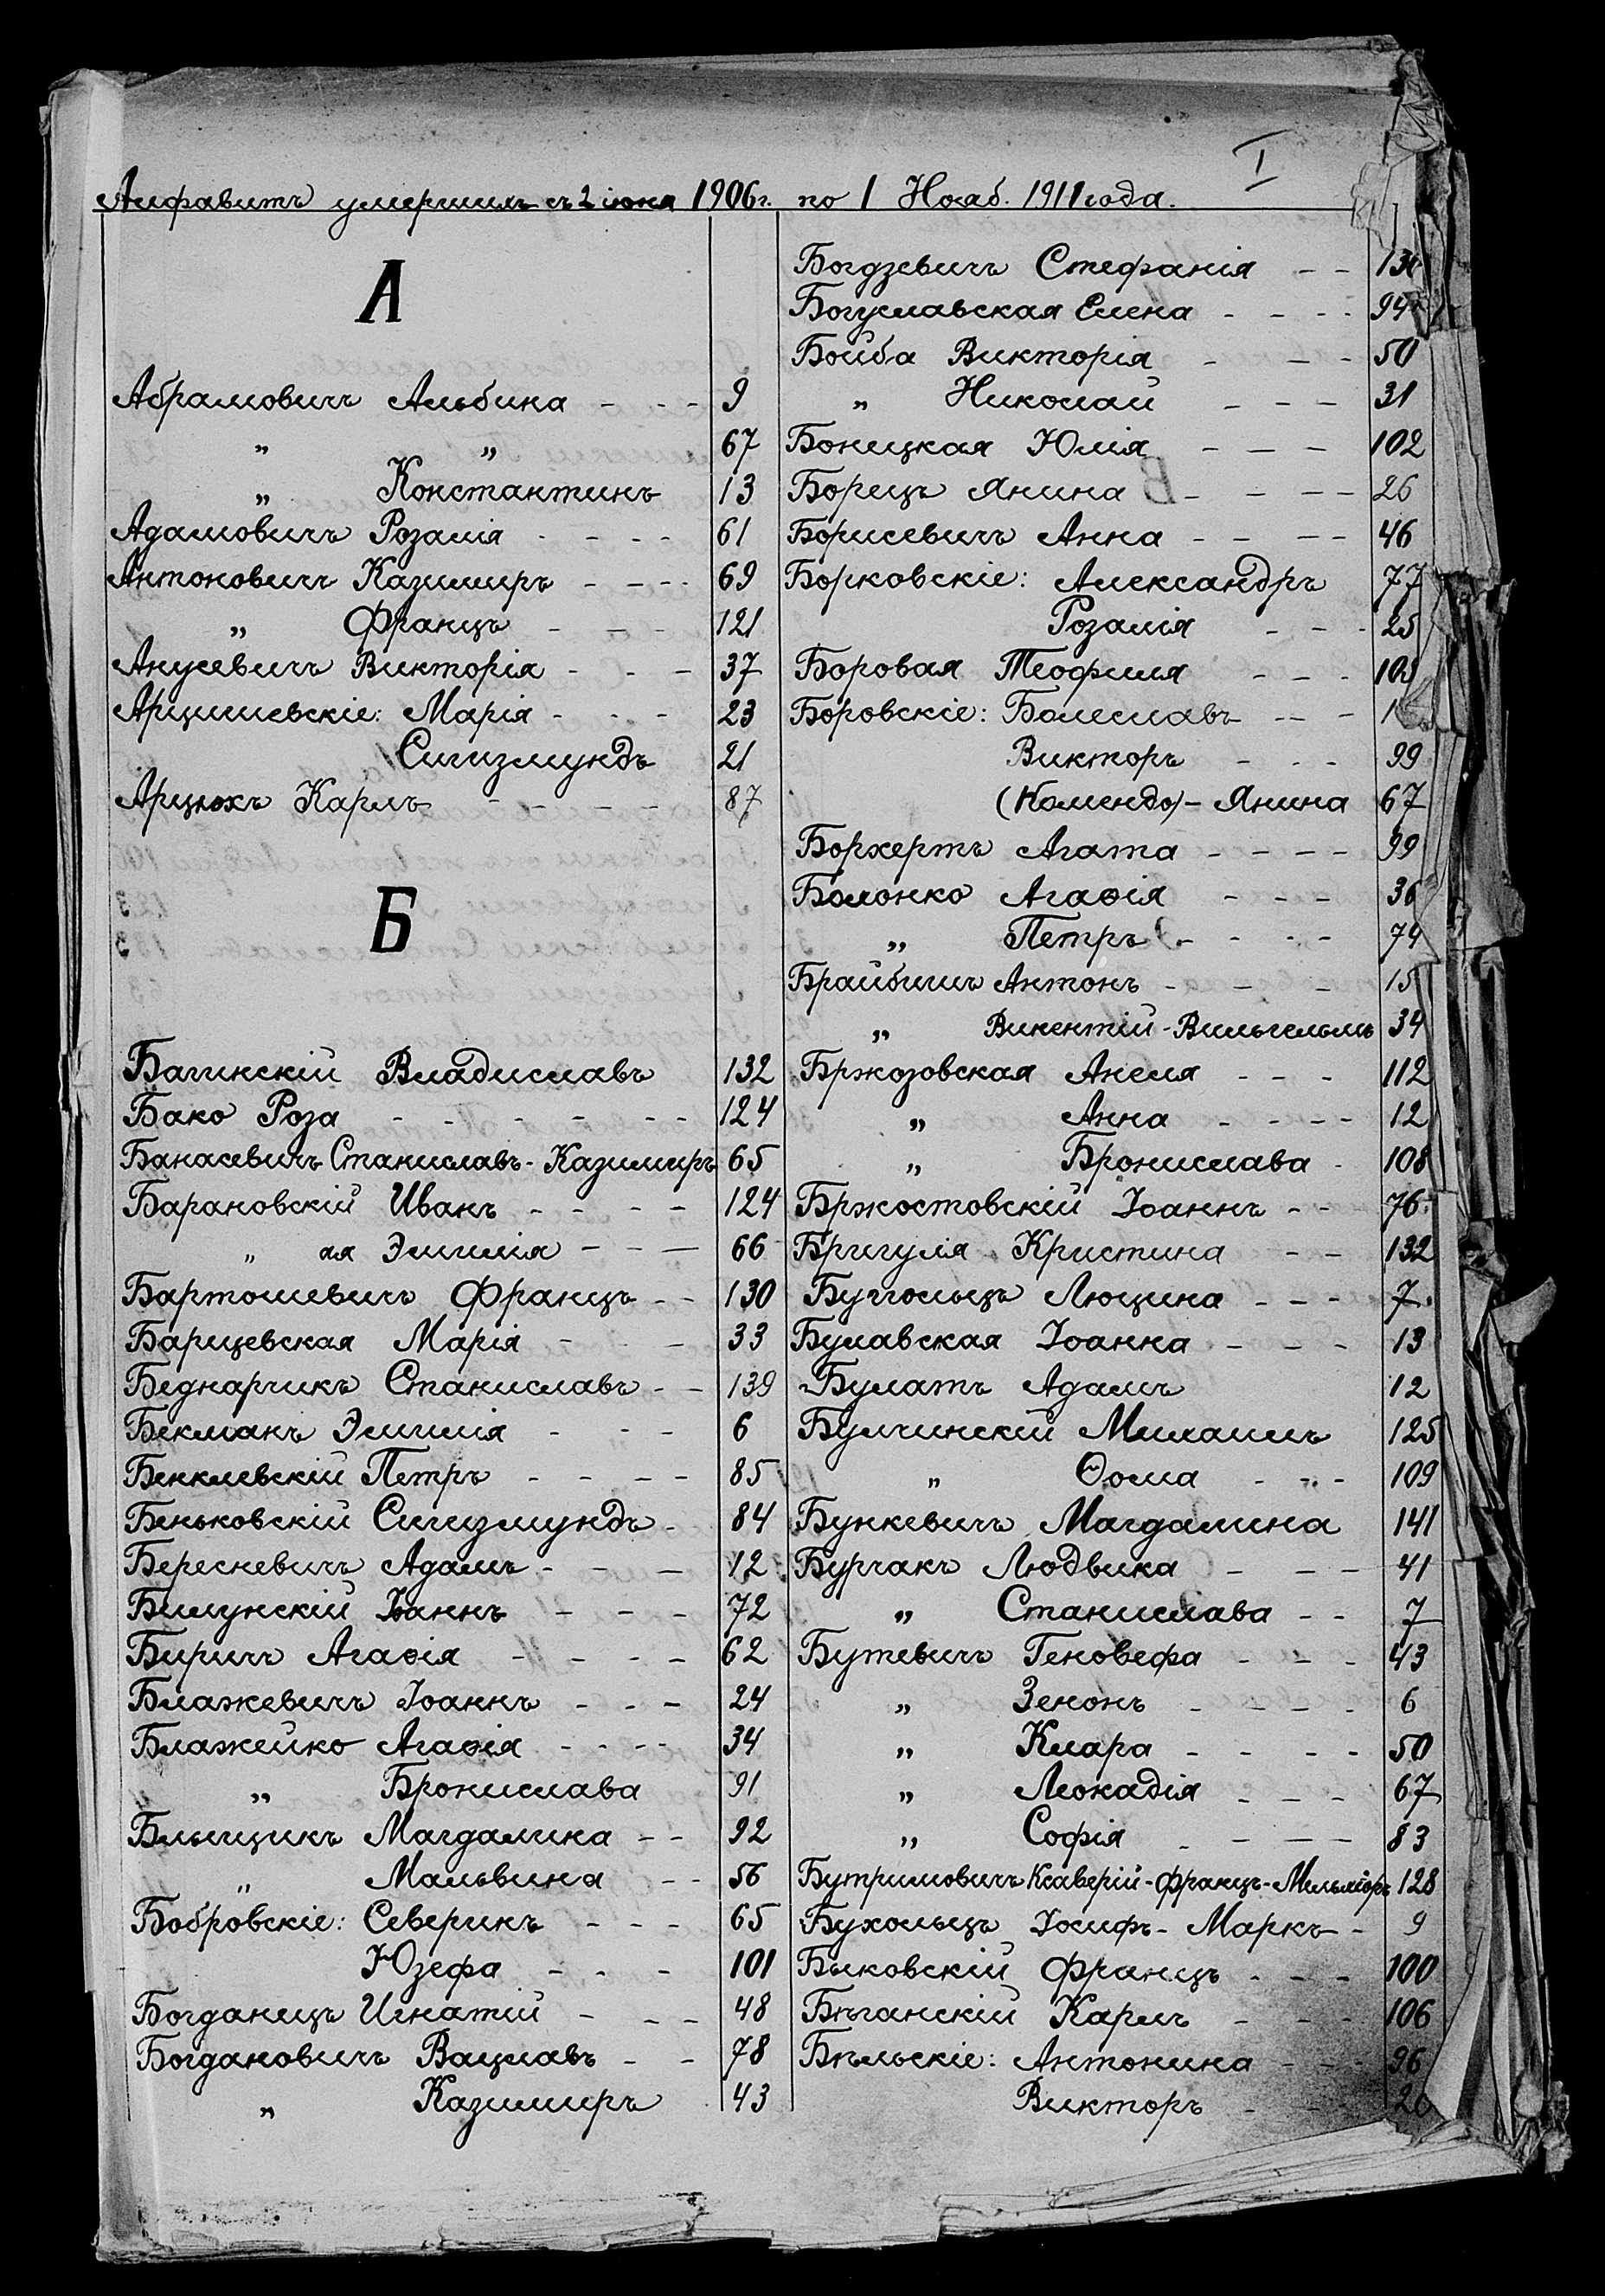 I
Алфавитъ умершихъ съ 2 іюня 1906г. по 1 Нояб. 1911 года.
А
Абрамовичъ Альбина - - - 9
„ „ 67
„ Константинъ 13
Адамовичъ Розалія - - - - 61
Антоновичъ Казимиръ - - - - 69
„ Францъ - - - 121
Анусевичъ Викторія - - - 37
Арцишевскіе: Марія - - - 23
Сигизмундъ 21
Арцюхъ Карлъ - - - - - 87
Б
Багинскій Владиславъ 132
Бако Роза - - - - - - - 124
Банасевичъ Станиславъ-Казимиръ 65
Барановскій Иванъ - - - - 124
„ ая Эмилія - - - 66
Бартошевичъ Францъ - - 130
Барцевская Марія - - - 33
Беднарчикъ Станиславъ - - 139
Бекманъ Эмилія - - - 6
Бенклевскій Петръ - - - - 85
Беньковскій Сигизмундъ - 84
Бересневичъ Адамъ - - - 12
Билунскій Іоаннъ - - - 72
Биричъ Агаѳія - - - - 62
Блажевичъ Іоаннъ - - - 24
Блажейко Агаѳія - - - - 34
„ Бронислава 91
Блыщикъ Магдалина - - 92
„ Мальвина - - 56
Бобровскіе: Северинъ - - - 65
Юзефа - - - 101
Богданецъ Игнатій - - - 48
Богдановичъ Вацлавъ - - 78
„ Казимиръ 43
Богдзевичъ Стефанія - -
Богуславская Елена - - - - 94
Бойба Викторія - - - 50
„ Николай - - - 31
Боницкая Юлія - - - 102
Борецъ Янина - - - - 26
Борисевичъ Анна - - - - 46
Борковскіе: Александръ 77
Розалія - - - 25
Боровая Теофиля - - -
Боровскіе: Болеславъ - - -
Викторъ - - - 99
(Комендо) - Янина 67
Борхертъ Агата - - - - 99
Болонко Агаѳія - - - 36
„ Петръ - - - - 74
Брайбишъ Антонъ - - - 15
„ Викентій-Вильгельмъ 34
Бржозовская Анеля - - - 112
„ Анна - - - - 12
„ Бронислава - 108
Бржостовскій Іоаннъ - - 76
Бригуля Кристина - - 132
Буггольцъ Люцина - - - 7
Булавская Іоанна - - - 13
Булатъ Адамъ 12
Булчинскій Михаилъ 125
„ Ѳома - - - 109
Бункевичъ Магдалина 141
Бурчакъ Людвика - - - 41
„ Станислава - - 7
Бутевичъ Геновефа - - - 43
„ Зенонъ - - - - 6
„ Клара - - - - 50
„ Леокадія - - - 67
„ Софія - - - - 83
Бутримовичъ Ксаверій-Францъ-Мельхіоръ 128
Бухольцъ Іосифъ-Маркъ - 9
Быковскій Францъ - - - 100
Бѣганскій Карлъ - - - 106
Бѣльскіе: Антонина - - - 96
Викторъ - - -